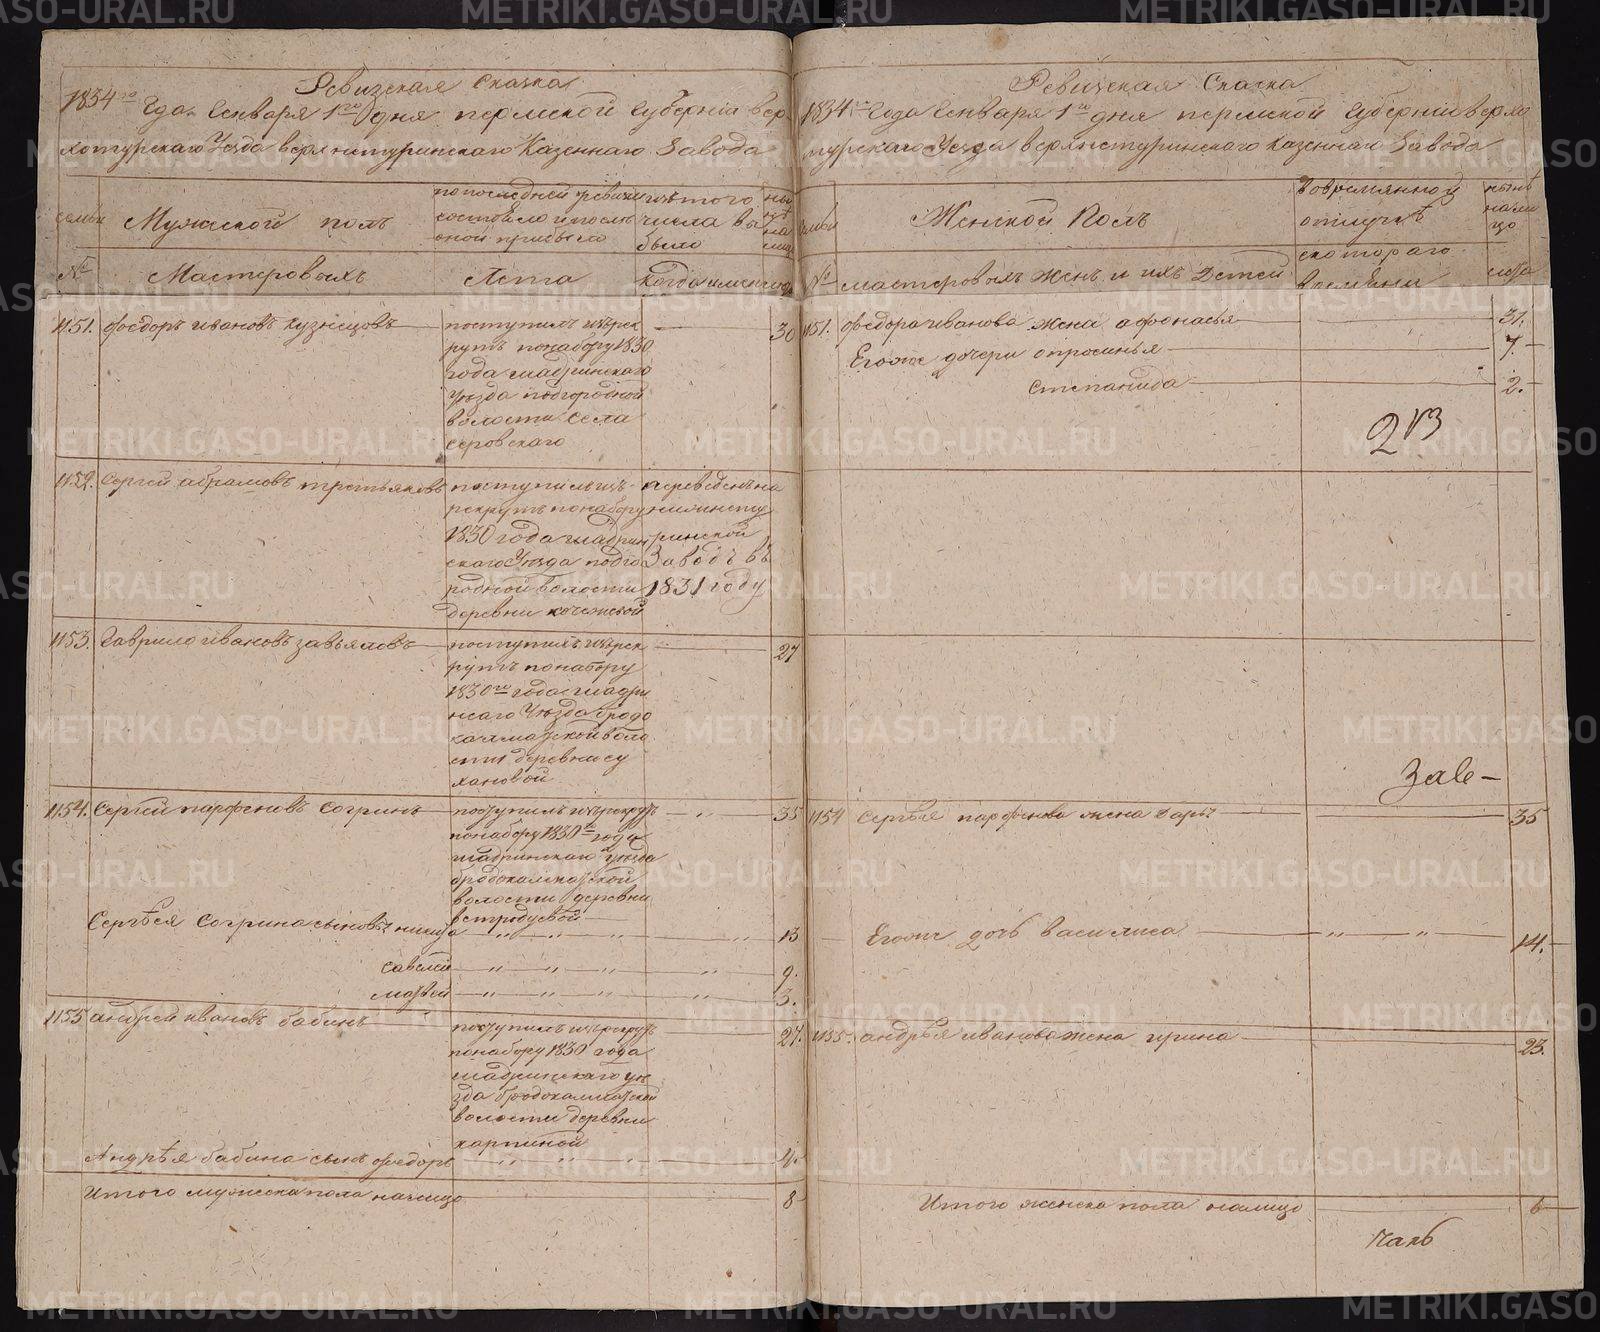 Ревизская Сказка
1834го Года Генваря 1го дня пермской Губернии вер
хотурскаго Уезда верхнетуринскаго Казеннаго Завода
семьи
Мужеской полъ
по последней ревизии
состояло и после
оной прибыло
из того
числа вы
было
ны
нѣ
на
лицо
№
Мастеровыхъ
Лета
Когда имянно
1151.
Феодоръ ивановъ кузнецовъ
поступилъ изърек
рутъ понабору 1830
года шадринскаго
Уезда подгородной
волости Села
серовскаго
30
1152.
Сергей абрамовъ третьяковъ
поступилъ изъ
рекрутъ понабору
1830 года шадрин
скаго Уезда подго
родной волости
деревни
переведенъ на
нижнету
ринской
Заводъ въ
1831 году
1153.
Гаврило ивановъ завьяловъ
поступилъ изърек
рутъ понабору
1830го года шадри
нскаго Уезда Бродо
калмацкой воло
сти деревни су
хановой
27
1154.
Сергей парфеновъ Согринъ
поступилъ изърекрутъ
понабору 1830го года
шадринскаго уезда
бродокалмацкой
волости деревни
35
Сергѣя Согрина сыновья никита
13
савелей
9.
матвей
3.
1155
андрей ивановъ бабинъ
поступилъ изърекрутъ
понабору 1830 года
шадринскаго уе
зда бродокалмацкой
волости деревни
27.
Андрѣя бабина сынъ феодоръ
4.
Итого мужеска пола налицо
8
Ревизская Сказка
1834го Года Генваря 1го дня пермской Губернии верхо
турскаго Уезда верхнетуринскаго Казеннаго Завода
семьи
Женской Полъ
Вовремянной
отлучкѣ
нынѣ
нали
цо
№
мастеровыхъ женъ и ихъ Детей
скотораго
времяни
лета
1151.
Феодора иванова жена афонасья
31.
Егоже дочери опросинья
7.
степанида
2.
213
1154
Сергѣя парфенова жена Дарья
35
Егоже дочь василиса
14.
1155.
андрѣя иванова жена ирина
23.
Итого женска пола налицо
6
METRIKI.GASO-URAL.RU